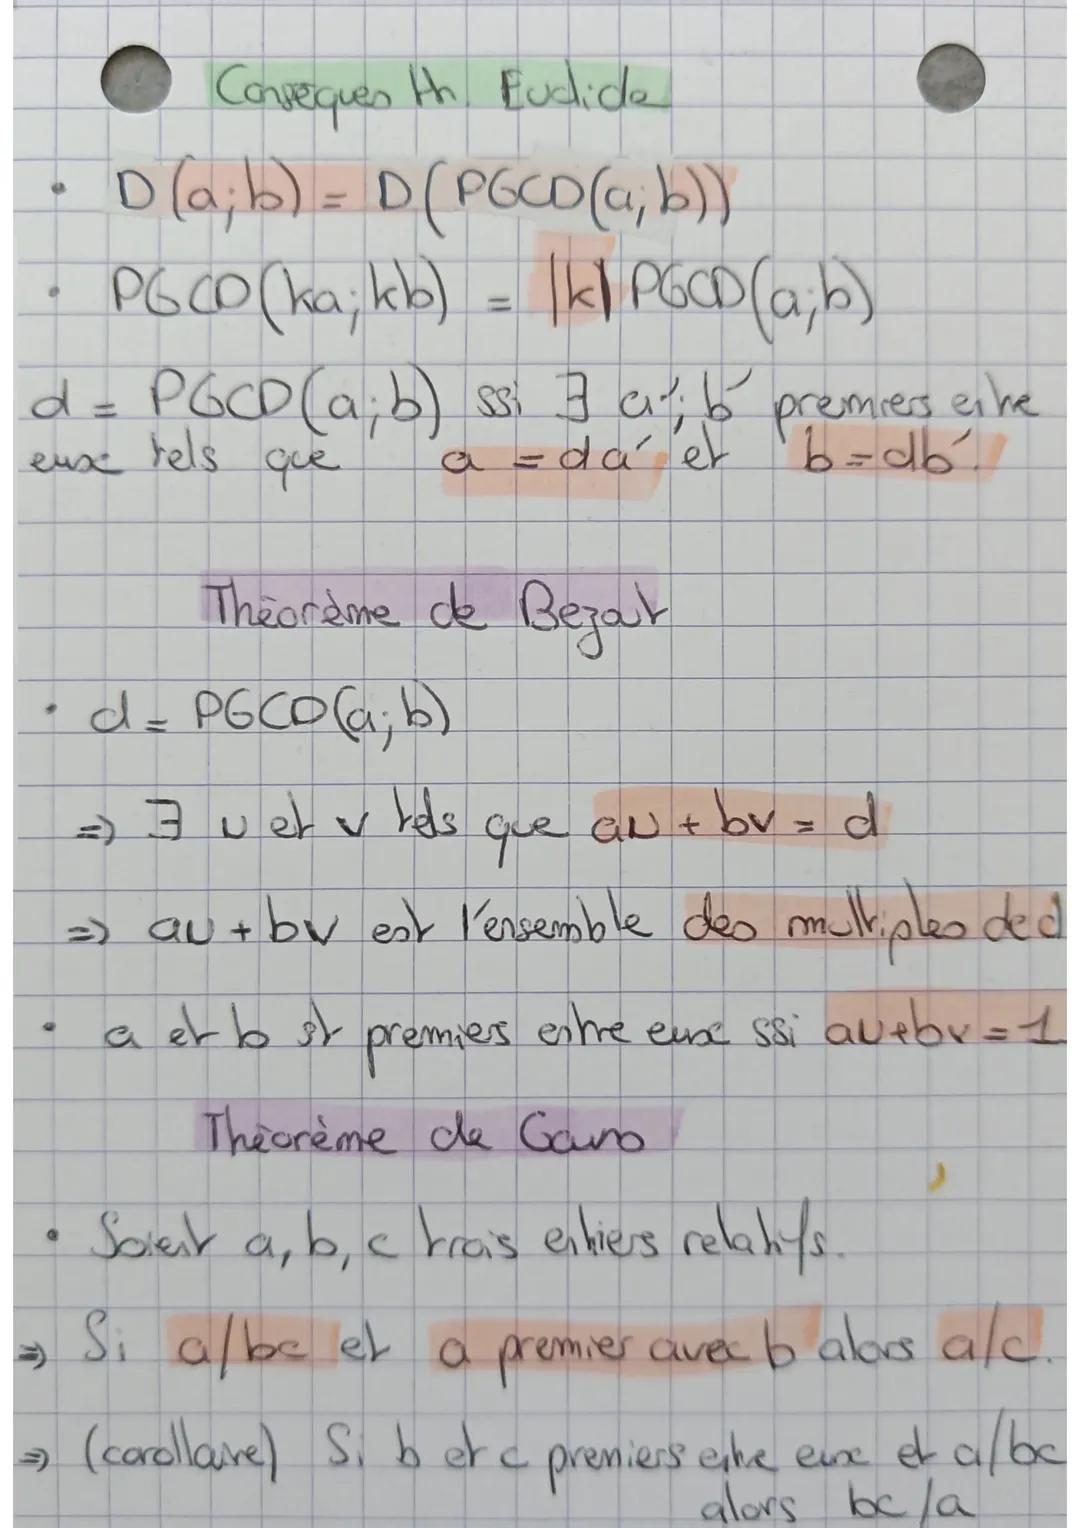 Conséquen th Euclide
• D(a;b) = D(PGCD(a;b))
• PGCD(ka;kb) = |k| PGCD(a;b)
d = PGCD(a;b) ssi ∃ a';b' premiers entre
eux tels que a = da' et b = db'.
Théorème de Bezout
• d = PGCD(a;b)
=> ∃ u et v tels que au + bv = d
=> au + bv est l'ensemble des multiples de d
• a et b st premiers entre eux ssi au+bv = 1
Théorème de Gauss
• Soient a, b, c trois entiers relatifs.
=> Si a/bc et a premier avec b alors a/c.
=> (corollaire) Si b et c premiers entre eux et a/bc
alors bc/a